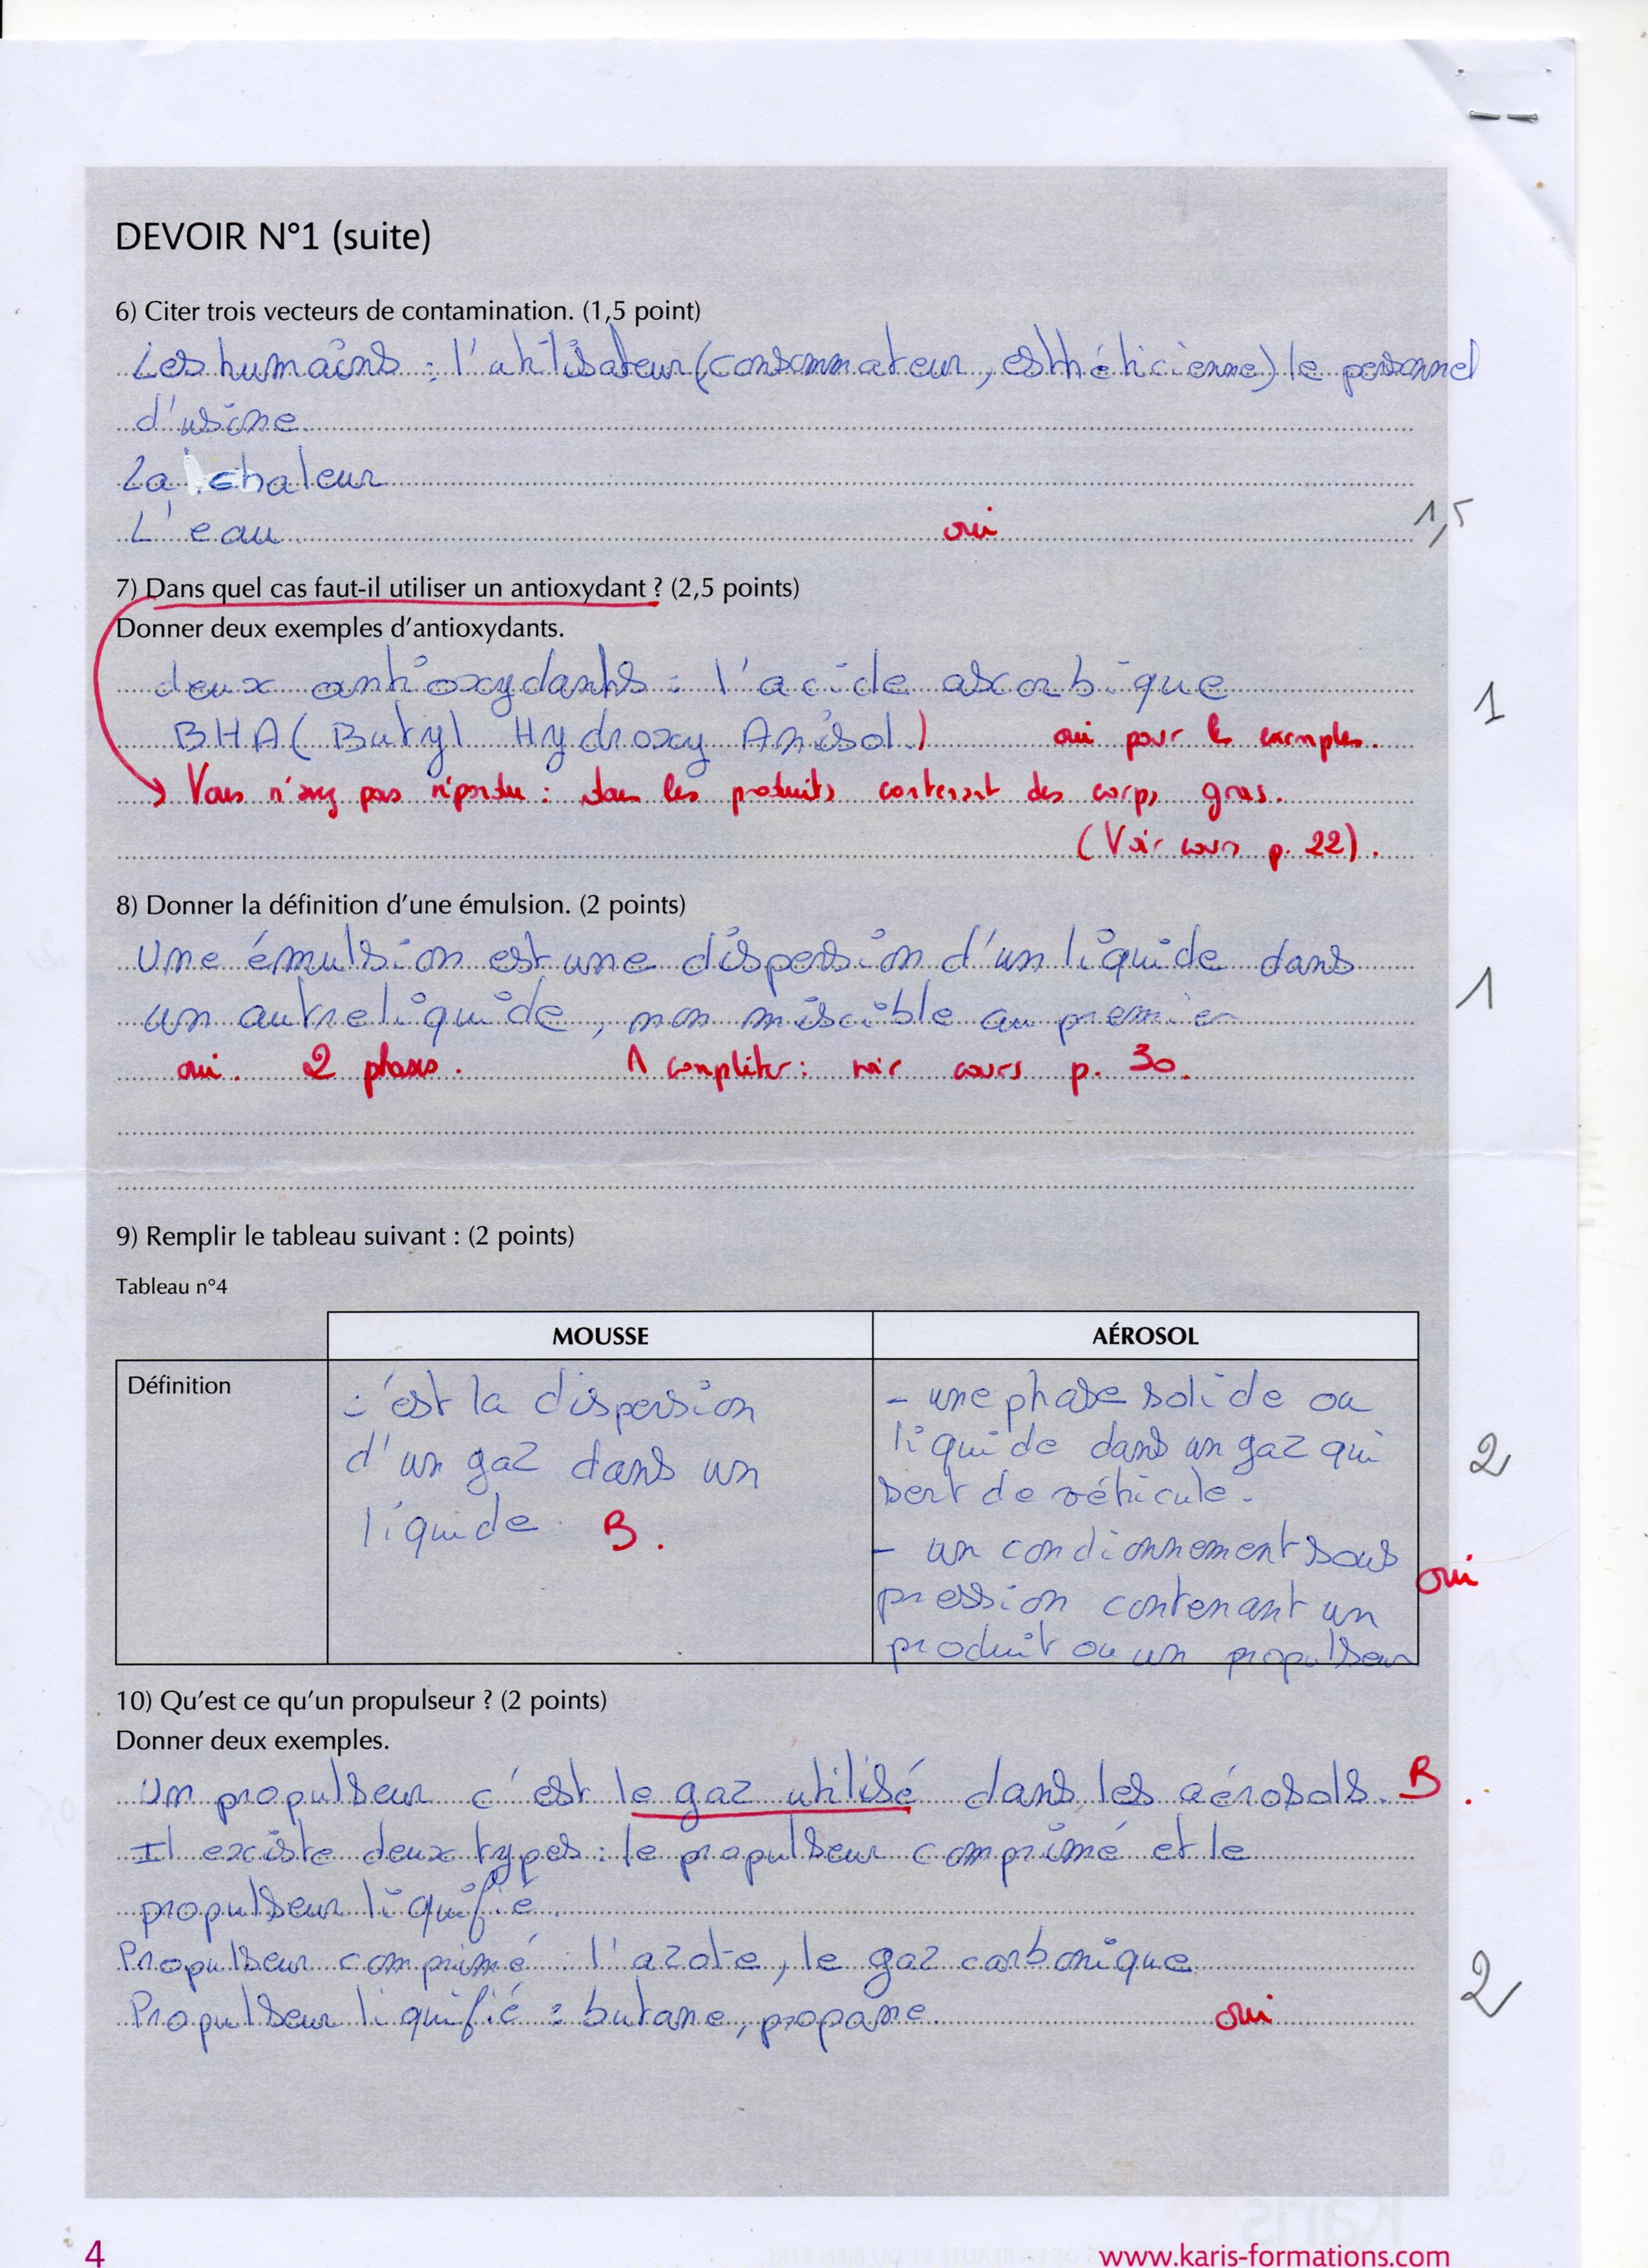 DEVOIR N°1 (suite)
6) Citer trois vecteurs de contamination. (1,5 point)
Les humains : l'utilisateur (consommateur, esthéticienne) le personnel
d'usine
La chaleur
L'eau
oui
1,5
7) Dans quel cas faut-il utiliser un antioxydant ? (2,5 points)
Donner deux exemples d'antioxydants.
deux antioxydants : l'acide ascorbique
1
BHA ( Butyl Hydroxy Anisol ) oui pour les exemples.
Vous n'avez pas répondu : dans les produits contenant des corps gras.
(Voir cours p. 22).
8) Donner la définition d'une émulsion. (2 points)
Une émulsion est une dispersion d'un liquide dans
un autre liquide, non miscible au premier
1
oui. 2 phases. A compléter : voir cours p. 30.
9) Remplir le tableau suivant : (2 points)
Tableau n°4
MOUSSE
AÉROSOL
Définition
c'est la dispersion
d'un gaz dans un
liquide. B.
- une phase solide ou
liquide dans un gaz qui
sert de véhicule.
- un condionnement sous
pression contenant un
produit ou un propulseur
2
oui
10) Qu'est ce qu'un propulseur ? (2 points)
Donner deux exemples.
Un propulseur c'est le gaz utilisé dans les aérosols. B.
Il existe deux types : le propulseur comprimé et le
propulseur liquifié.
Propulseur comprimé : l'azote, le gaz carbonique
Propulseur liquifié : butane, propane. oui
2
4
www.karis-formations.com